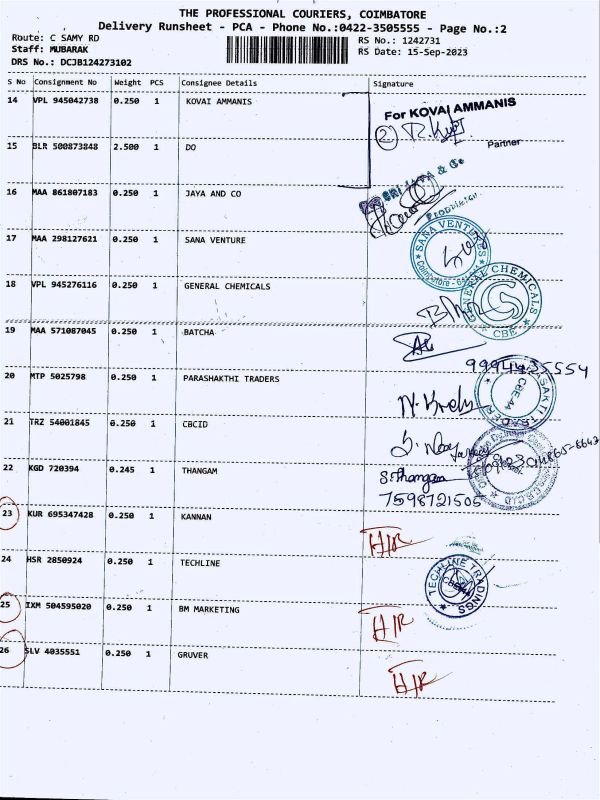 THE PROFESSIONAL COURIERS, COIMBATORE
Delivery Runsheet - PCA - Phone No.:0422-3505555 - Page No.:2
Route: C SAMY RD
RS No.: 1242731
Staff: MUBARAK
RS Date: 15-Sep-2023
DRS No.: DCJB124273102
S No Consignment No Weight PCS Consignee Details Signature
14 VPL 945042738 0.250 1 KOVAI AMMANIS
For KOVAI AMMANIS
2
Partner
15 BLR 500873848 2.500 1 DO
16 MAA 861807183 0.250 1 JAYA AND CO
17 MAA 298127621 0.250 1 SANA VENTURE
SANA VENTURES
18 VPL 945276116 0.250 1 GENERAL CHEMICALS
GENERAL CHEMICALS
CBE
19 MAA 571087045 0.250 1 BATCHA
9994435554
20 MTP 5025798 0.250 1 PARASHAKTHI TRADERS
21 TRZ 54001845 0.250 1 CBCID
22 KGD 720394 0.245 1 THANGAM
S.Thangam
7598721505
23 KUR 695347428 0.250 1 KANNAN
H/R
24 HSR 2850924 0.250 1 TECHLINE
TECHLINE TRADINGS
25 IXM 504595020 0.250 1 BM MARKETING
H/R
26 SLV 4035551 0.250 1 GRUVER
H/R